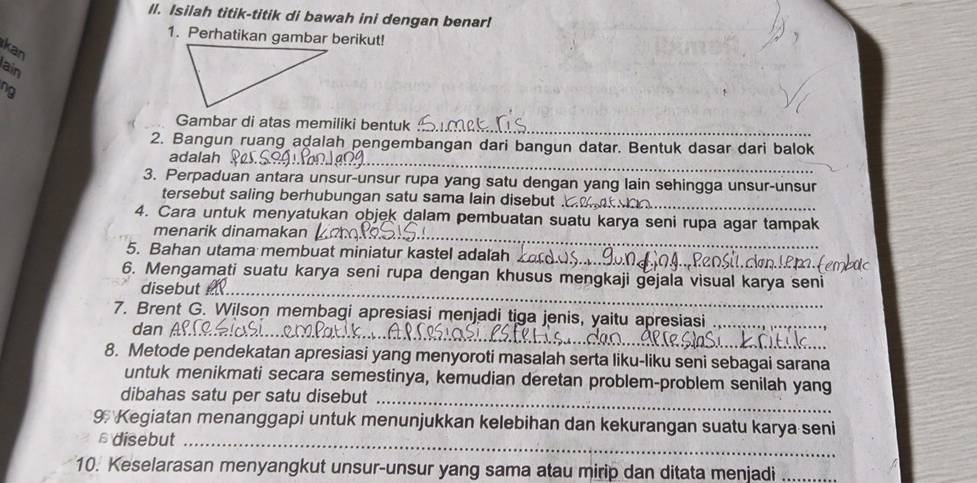 II. Isilah titik-titik di bawah ini dengan benar!
1. Perhatikan gambar berikut!
kan
lain
ng
Gambar di atas memiliki bentuk Simetris
2. Bangun ruang adalah pengembangan dari bangun datar. Bentuk dasar dari balok
adalah Persegi Panjang
3. Perpaduan antara unsur-unsur rupa yang satu dengan yang lain sehingga unsur-unsur
tersebut saling berhubungan satu sama lain disebut Kesatuan
4. Cara untuk menyatukan objek dalam pembuatan suatu karya seni rupa agar tampak
menarik dinamakan KomPoSiSi
5. Bahan utama membuat miniatur kastel adalah Kardus, gunting, Pensil, dan lem tembak
6. Mengamati suatu karya seni rupa dengan khusus mengkaji gejala visual karya seni
disebut
7. Brent G. Wilson membagi apresiasi menjadi tiga jenis, yaitu apresiasi ........, ........,
dan APresiasi emPatik, APresiasi estetis, dan apresiasi kritik
8. Metode pendekatan apresiasi yang menyoroti masalah serta liku-liku seni sebagai sarana
untuk menikmati secara semestinya, kemudian deretan problem-problem senilah yang
dibahas satu per satu disebut
9. Kegiatan menanggapi untuk menunjukkan kelebihan dan kekurangan suatu karya seni
disebut
10. Keselarasan menyangkut unsur-unsur yang sama atau mirip dan ditata menjadi ...........